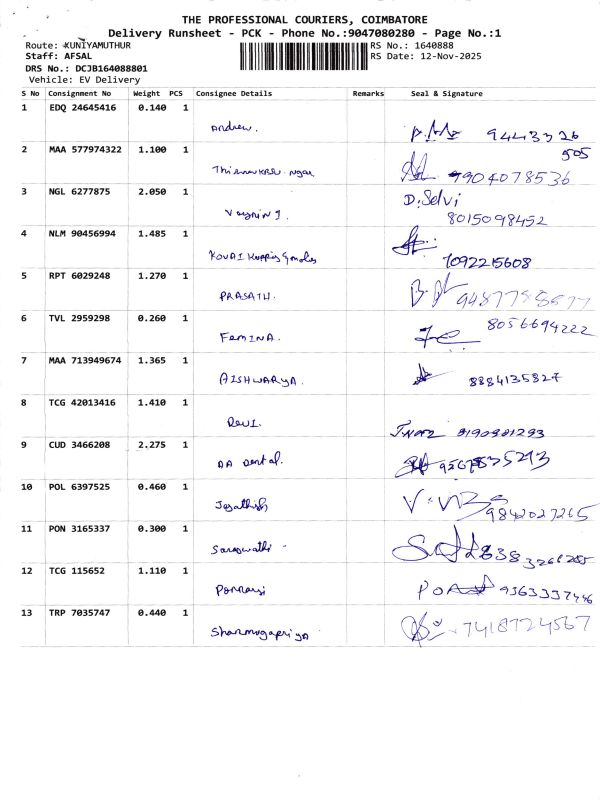 THE PROFESSIONAL COURIERS, COIMBATORE
Delivery Runsheet - PCK - Phone No.:9047080280 - Page No.:1
Route: KUNIYAMUTHUR RS No.: 1640888
Staff: AFSAL RS Date: 12-Nov-2025
DRS No.: DCJB164088801
Vehicle: EV Delivery
S No Consignment No Weight PCS Consignee Details Remarks Seal & Signature
1 EDQ 24645416 0.140 1
Andrew. 9443326
505
2 MAA 577974322 1.100 1
9904078536
3 NGL 6277875 2.050 1 D. Selvi
8015098452
4 NLM 90456994 1.485 1
KOVAI 7092215608
5 RPT 6029248 1.270 1
PRASATH.
6 TVL 2959298 0.260 1 8056694222
FEMINA.
7 MAA 713949674 1.365 1
AISHWARYA. 8884135827
8 TCG 42013416 1.410 1
Devi. 8190981293
9 CUD 3466208 2.275 1
DA Dental.
10 POL 6397525 0.460 1
Jegathish 9842027265
11 PON 3165337 0.300 1
Saraswathi -
12 TCG 115652 1.110 1
Ponrasi 9363337446
13 TRP 7035747 0.440 1
Shanmugapriya 7418724567